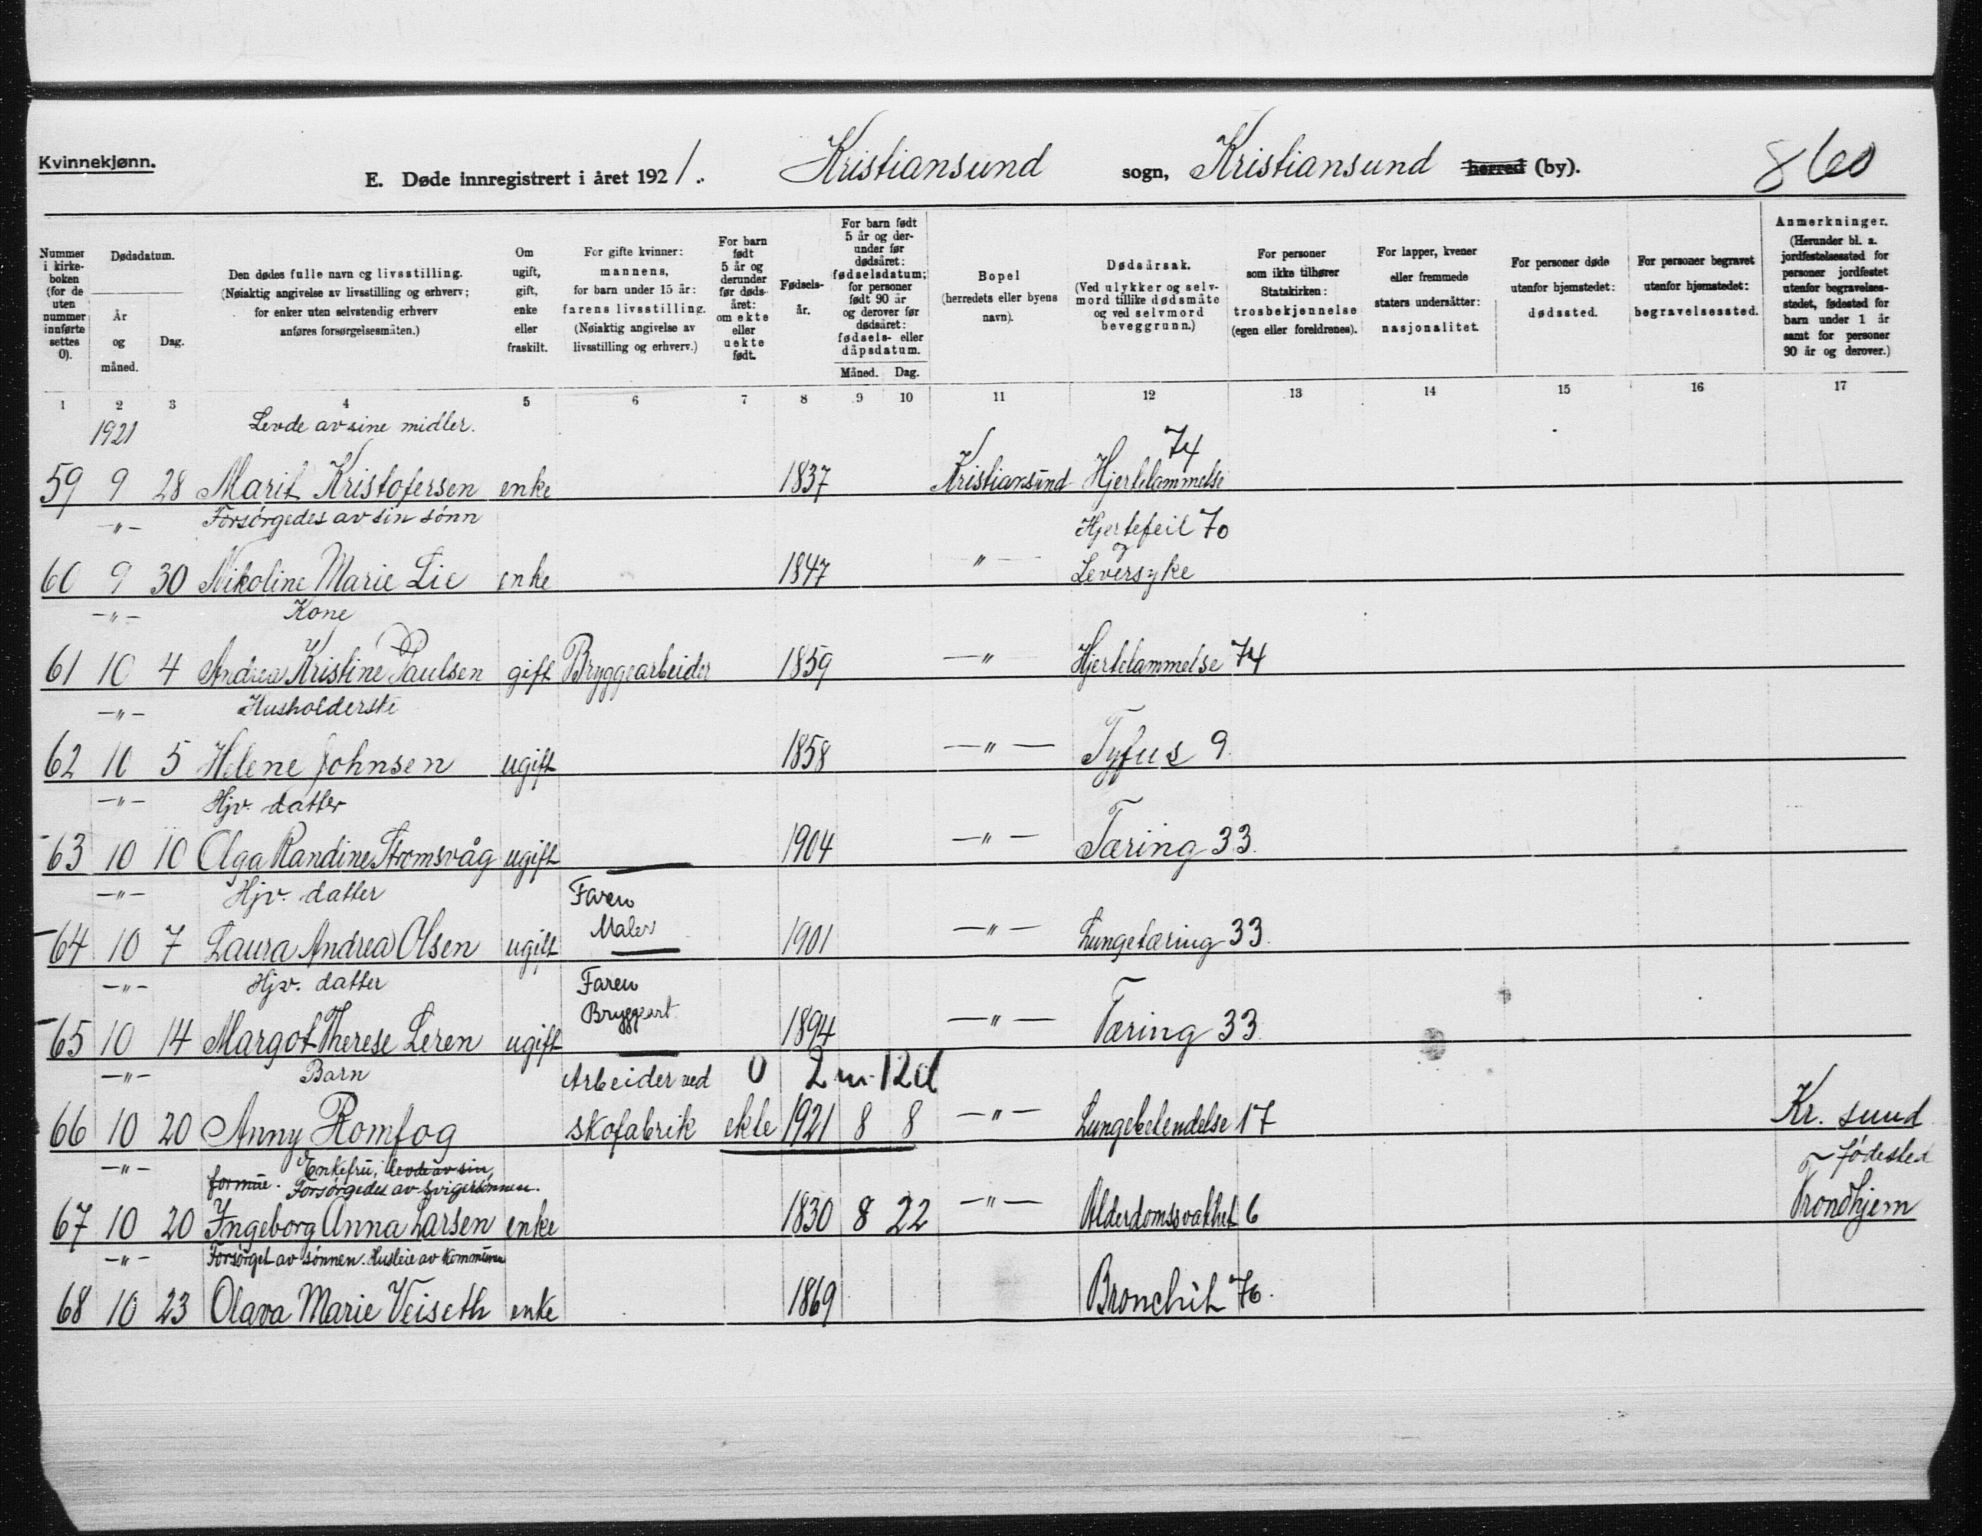 Kvinnekjønn.
E. Døde innregistrert i året 1921. Kristiansund sogn, Kristiansund herred (by). 860
Nummer i kirkeboken (for de uten nummer innførte settes 0).
Dødsdatum.
År og måned.
Dag.
Den dødes fulle navn og livsstilling.
(Nøiaktig angivelse av livsstilling og erhverv;
for enker uten selvstendig erhverv
anføres forsørgelsesmåten.)
Om ugift, gift, enke eller fraskilt.
For gifte kvinner: mannens, for barn under 15 år: farens livsstilling.
(Nøiaktig angivelse av livsstilling og erhverv.)
For barn født 5 år og derunder før dødsåret: om ekte eller uekte født.
Fødselsår.
For barn født 5 år og derunder før dødsåret: fødselsdatum; for personer født 90 år og derover før dødsåret: fødsels- eller dåpsdatum.
Måned. Dag.
Bopel
(herredets eller byens navn).
Dødsårsak.
(Ved ulykker og selvmord tillike dødsmåte og ved selvmord beveggrunn.)
For personer som ikke tilhører Statskirken: trosbekjennelse (egen eller foreldrenes).
For lapper, kvener eller fremmede staters undersåtter: nasjonalitet.
For personer døde utenfor hjemstedet: dødssted.
For personer begravet utenfor hjemstedet: begravelsessted.
Anmerkninger.
(Herunder bl. a. jordfestelsessted for personer jordfestet utenfor begravelsesstedet, fødested for barn under 1 år samt for personer 90 år og derover.)
1 2 3 4 5 6 7 8 9 10 11 12 13 14 15 16 17
1921 Levde av sine midler. 74
59 9 28 Marit Kristofersen enke 1837 Kristiansund Hjertelammelse
—"— Forsørgedes av sin sønn Hjertefeil 70
60 9 30 Nikoline Marie Lie enke 1847 "— Leversyke
—"— Kone
61 10 4 Andrea Kristine Paulsen gift Bryggearbeider 1859 —" Hjertelammelse 74
—"— Husholderske
62 10 5 Helene Johnsen ugift 1858 —"— Tyfus 9
—"— Hjv. datter
63 10 10 Olga Randine Strømsvåg ugift — 1904 —"— Tæring 33
—"— Hjv. datter Faren
64 10 7 Laura Andrea Olsen ugift Maler 1901 —"— Lungetæring 33
—"— Hjv. datter Faren
65 10 14 Margot Therese Leren ugift Bryggearb. 1894 —"— Tæring 33
—"— Barn Arbeider ved 0 2 m 12 d
66 10 20 Anny Romfog skofabrik ekte 1921 8 8 —"— Lungebetendelse 17 Kr. sund
—"— Enkefru, levde av sin fødested
formue. Forsørgedes av svigersønnen.
67 10 20 Ingeborg Anna Larsen enke 1830 8 22 —"— Alderdomssvakhet 6 Trondhjem
—"— Forsørget av sønnen. Husleie av kommunen
68 10 23 Olava Marie Veiseth enke 1869 Bronchit 76.